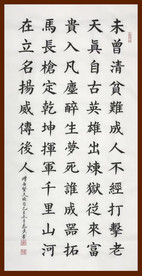 未曾清貧難成人不經打擊老
天眞自古英雄出煉獄從來富
貴入凡塵醉生夢死誰成器拓
馬長槍定乾坤揮軍千里山河
在立名揚威傳後人